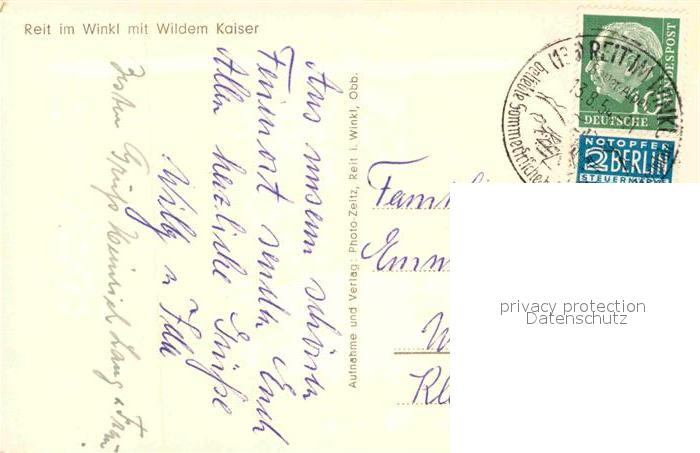 Reit im Winkl mit Wildem Kaiser
Aus unserm schönen
Ferienort senden Euch
Allen herzliche Grüße
Willy u Ida
Besten Gruß Heinrich Lang u Frau
Aufnahme und Verlag: Photo-Zeitz, Reit i. Winkl, Obb.
REIT IM WINKL
13.8.5
beliebte Sommerfrische
10
BUNDESPOST
DEUTSCHE
NOTOPFER
2 BERLIN
STEUERMARKE
Famil
Emm
W
Kl
privacy protection
Datenschutz